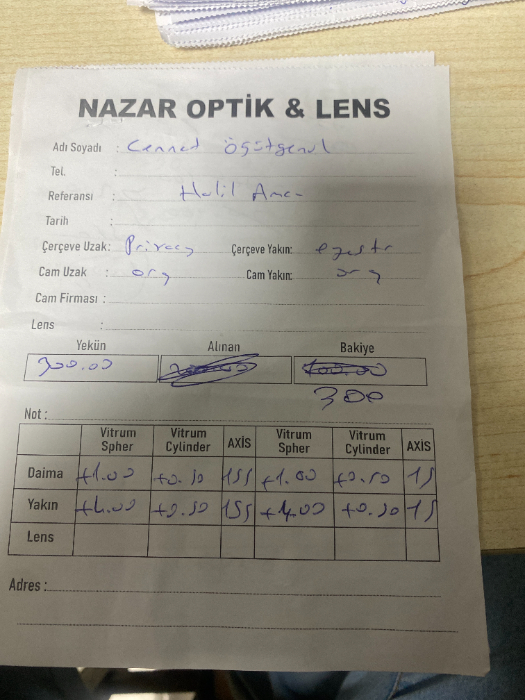 NAZAR OPTİK & LENS
Adı Soyadı : Cennet
Tel. :
Referansı : Halil
Tarih :
Çerçeve Uzak: Çerçeve Yakın:
Cam Uzak : org Cam Yakın: org
Cam Firması :
Lens :
Yekün Alınan Bakiye
300.00
300
Not :
Vitrum Spher Vitrum Cylinder AXİS Vitrum Spher Vitrum Cylinder AXİS
Daima +1.00 +0.50 155 +1.00 +0.50 15
Yakın +4.00 +0.50 155 +4.00 +0.50 15
Lens
Adres :